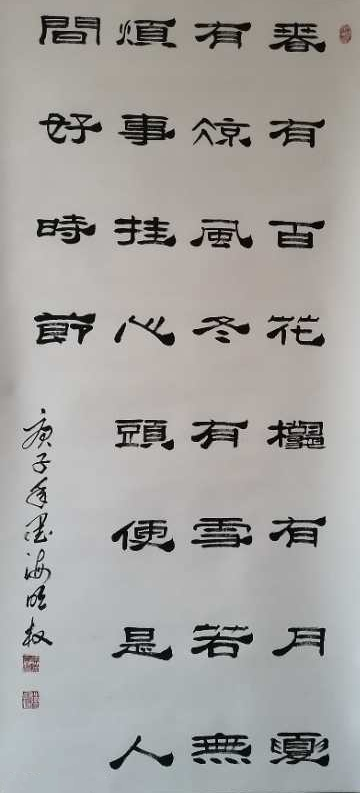 春有百花龝有月夏
有凉風冬有雪若無
煩事挂心頭便是人
間好時節
庚子年墨海